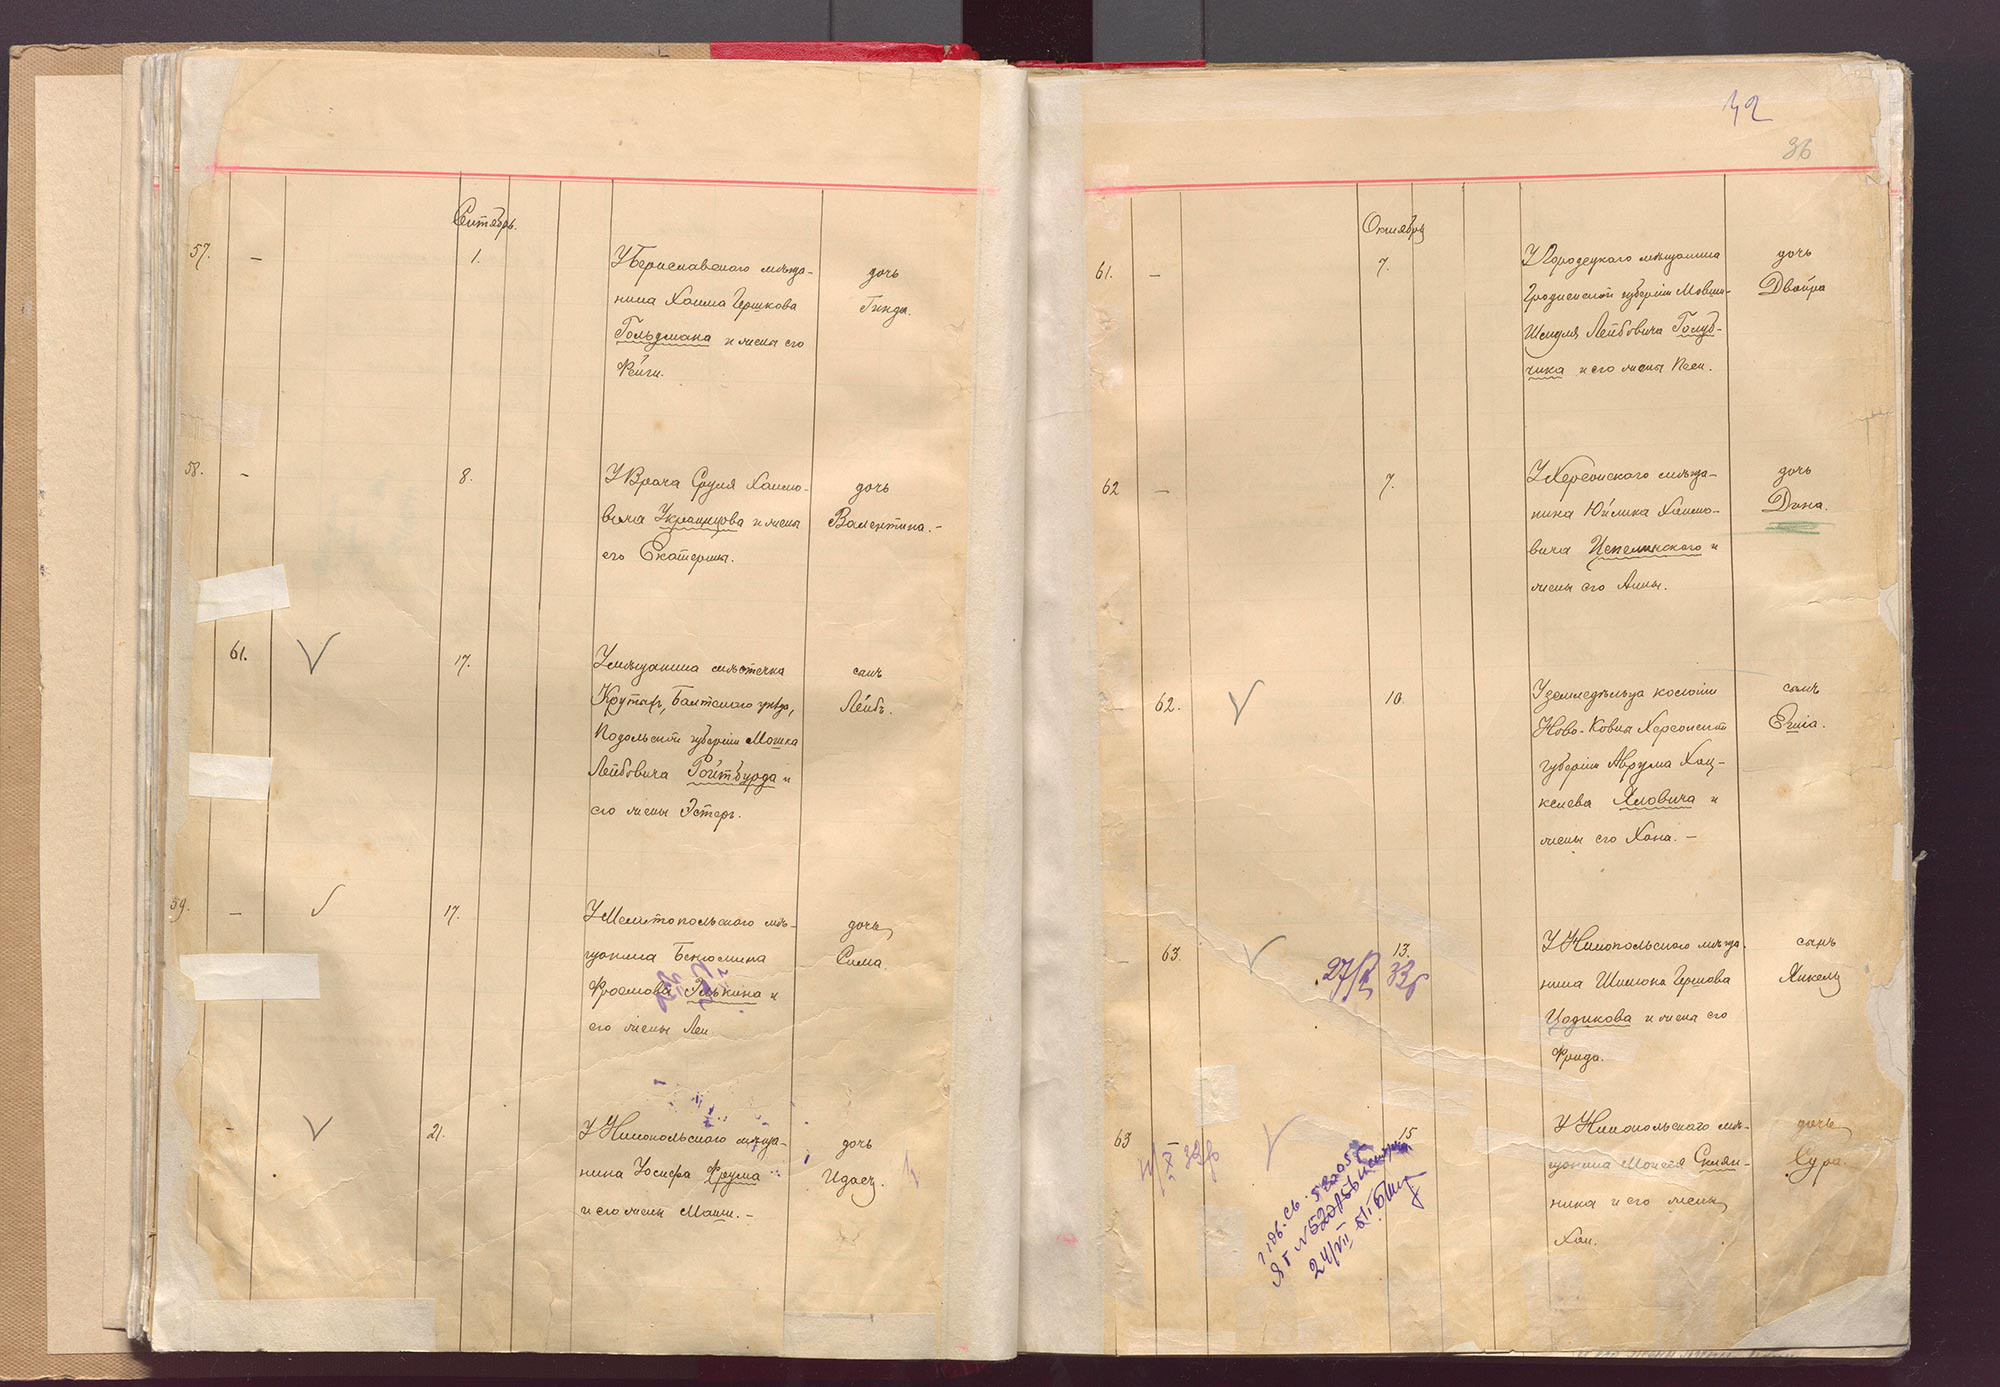 Сентябрь.
57.
—
1.
У Бериславского мѣща-
нина Хаима Гершкова
Гольдмана и жены его
Фейги.
дочь
Гинда.
58.
—
8.
У Врача Сруля Хаимо-
вича Украинцова и жены
его Екатерина.
дочь
Валентина. —
61.
17.
У мѣщанина мѣстечка
Балтского уѣзда,
Подольской губерніи Мошка
Лейбовича Ройтбурда и
его жены Эстерь.
сынъ
Лейбъ.
59.
—
17.
У Мелитопольского мѣ-
щанина Беніомина
Фроимова Элькина и
его жены Леи
дочь
Сима.
—
21.
У Никопольского мѣща-
нина Іосифа Фрума
и его жены Маши. —
дочь
42
36
Октябрь
61.
—
7.
У Городецкого мѣщанина
Гродненской губерніи Мовши-
Шмуля Лейбовича Голуб-
чика и его жены Песи.
дочь
Двойра
62
—
7.
У Херсонского мѣща-
нина Юйлика Хаимо-
вича и
жены его Анны.
дочь
Дина.
62.
10.
У земледѣльца колоніи
Ново-Ковна Херсонской
губерніи Аврума Хац-
келева Яловича и
жены его Хана. —
сынъ
Егіа.
63.
13.
У Никопольского мѣща-
нина Шимона Гершова
Цодикова и жена его
Фрида.
сынъ
Янкель
63
15
У Никопольского мѣ-
щанина Моисея Склян-
ника и его жены
Хаи.
дочь
Сура.
24/VII